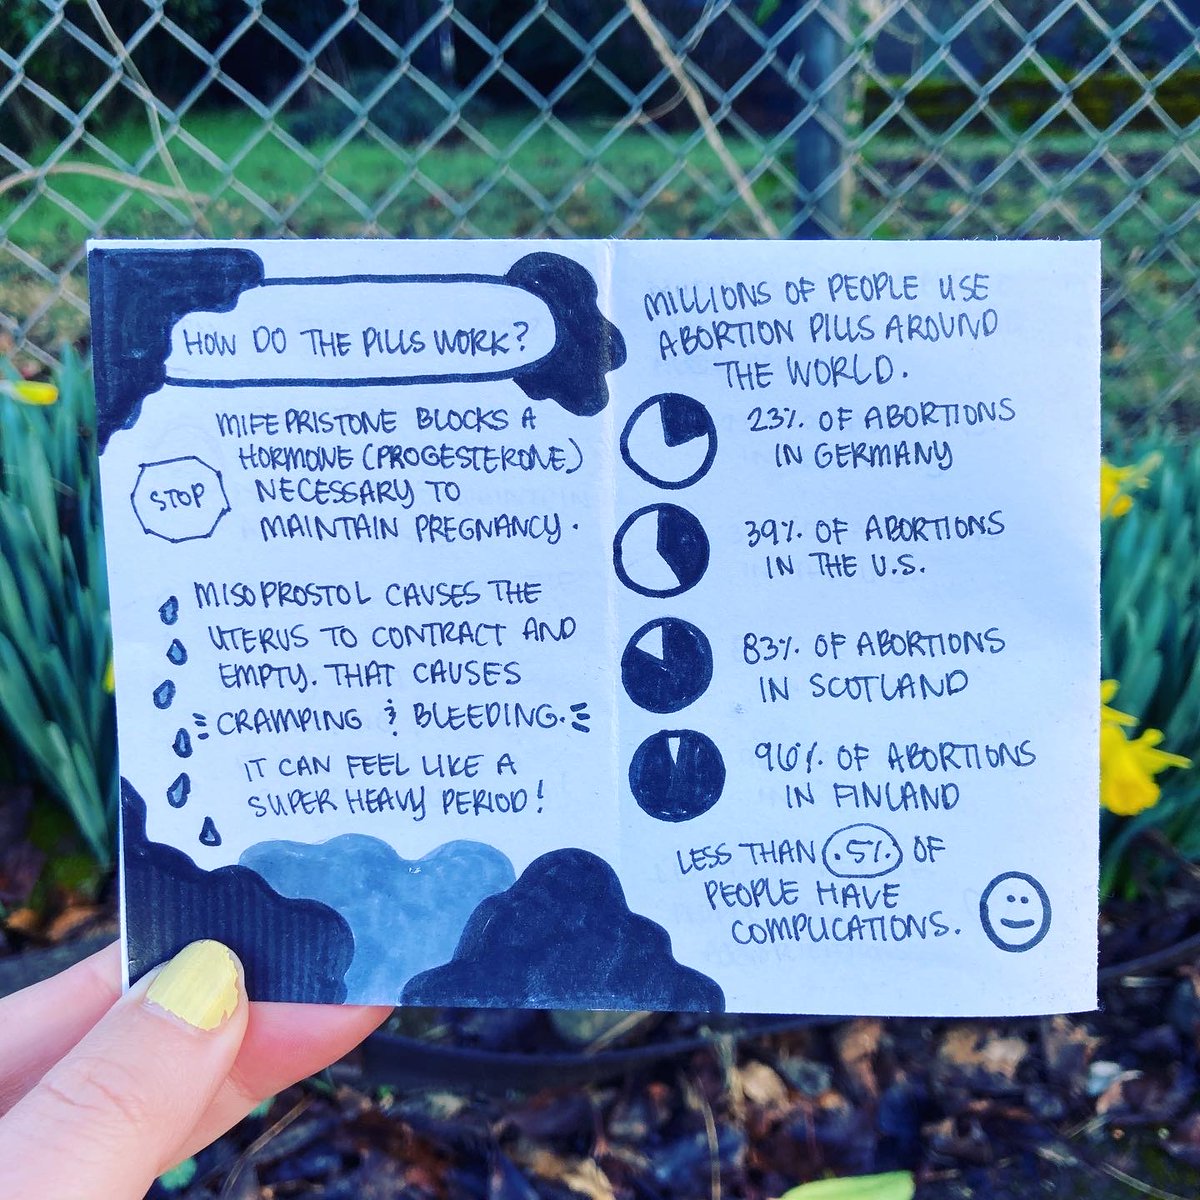 HOW DO THE PILLS WORK?
MIFEPRISTONE BLOCKS A
HORMONE (PROGESTERONE)
STOP
NECESSARY TO
MAINTAIN PREGNANCY.
MISOPROSTOL CAUSES THE
UTERUS TO CONTRACT AND
EMPTY. THAT CAUSES
CRAMPING & BLEEDING.
IT CAN FEEL LIKE A
SUPER HEAVY PERIOD!
MILLIONS OF PEOPLE USE
ABORTION PILLS AROUND
THE WORLD.
23% OF ABORTIONS
IN GERMANY
39% OF ABORTIONS
IN THE U.S.
83% OF ABORTIONS
IN SCOTLAND
96% OF ABORTIONS
IN FINLAND
LESS THAN .5% OF
PEOPLE HAVE
COMPLICATIONS.